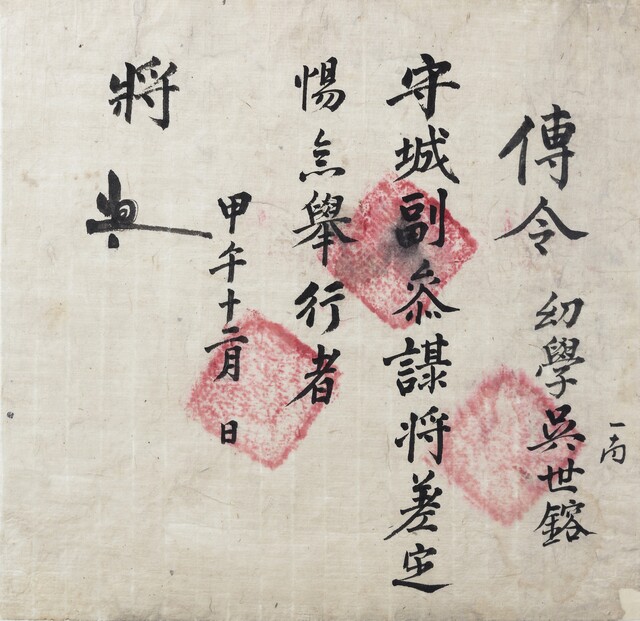 一 內
傳令 幼學吳世鎔
守城副叅謀將差定
惕念擧行者
甲午十二月 日
將